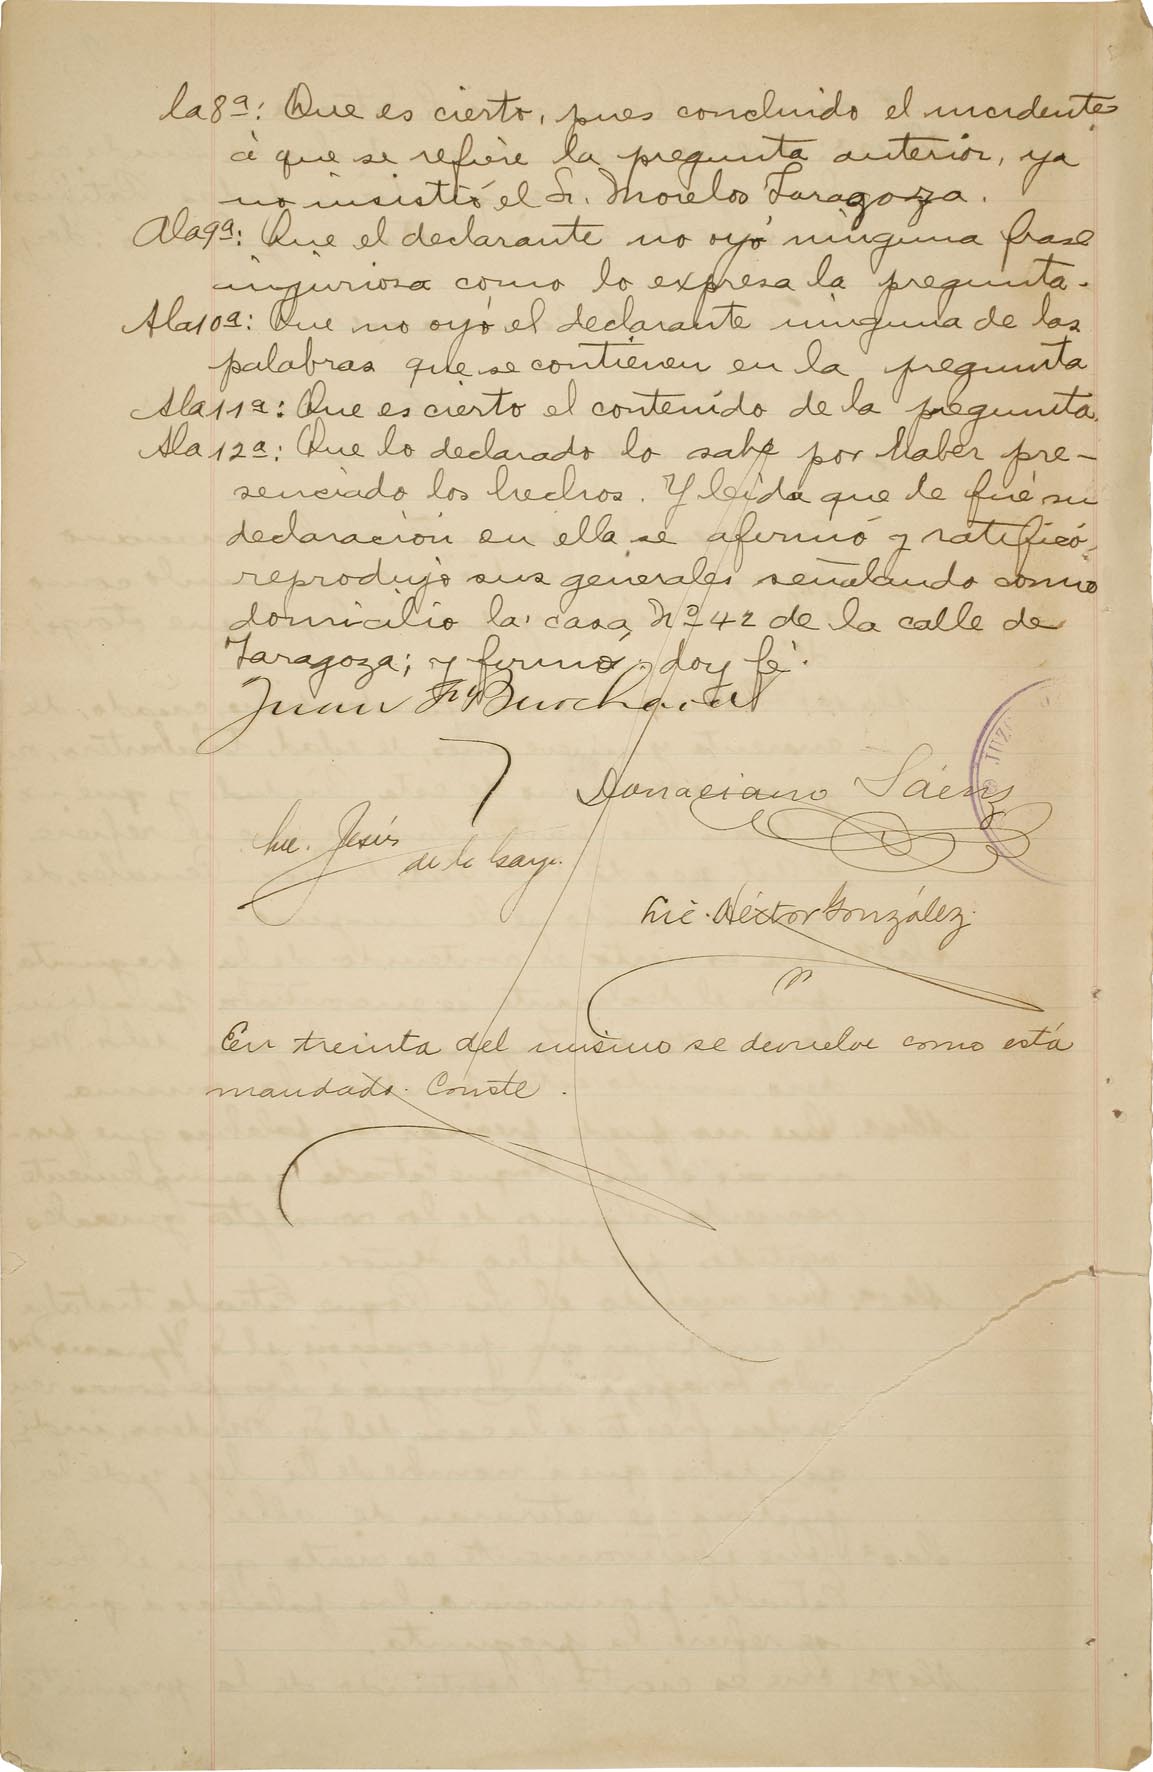 la 8ª: Que es cierto, pues concluido el incidente
á que se refiere la pregunta anterior, ya
no insistió el Sr. Morelos Zaragoza.
A la 9ª: Que el declarante no oyó ninguna frase
injuriosa como lo expresa la pregunta.
A la 10ª: Que no oyó el declarante ninguna de las
palabras que se contienen en la pregunta
A la 11ª: Que es cierto el contenido de la pregunta.
A la 12ª: Que lo declarado lo sabe por haber pre-
senciado los hechos. Y leida que le fué su
declaración en ella se afirmó y ratificó,
reprodujo sus generales señalando como
domicilio la casa Nº 42 de la calle de
Zaragoza; y firmó, doy fé.
Juan Burchard
JUZ
Donaciano Sáenz
Lic. Jesús
de la Garza.
Lic. Héctor González.
En treinta del mismo se devuelve como está
mandado. Conste.